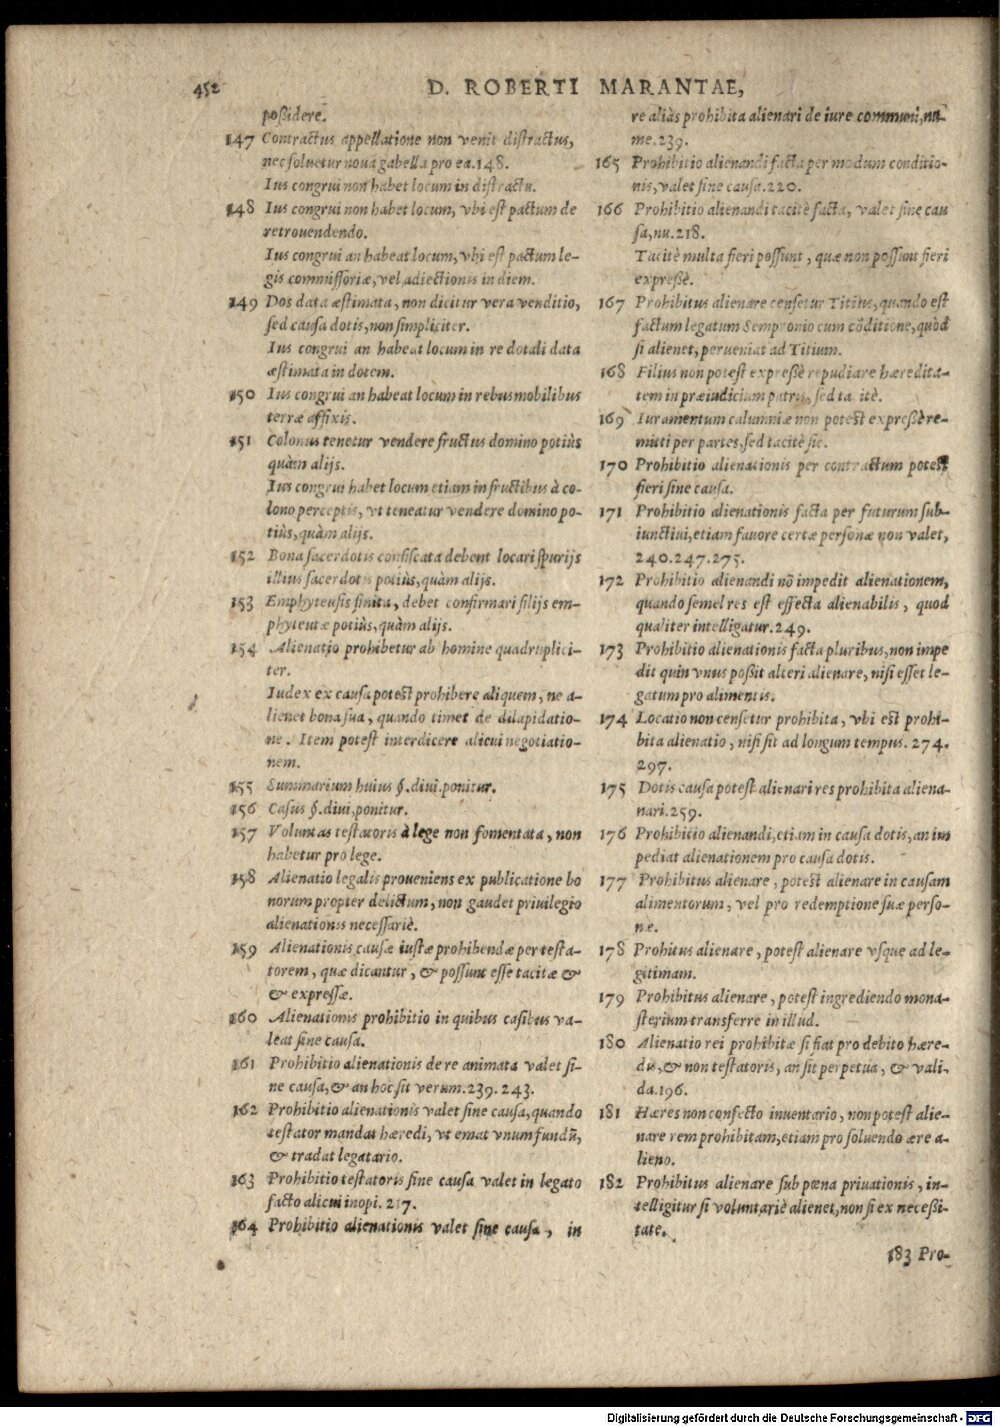 452
D. ROBERTI MARANTAE,
poßidere.
147 Contractus appellatione non venit distractus,
nec soluetur noua gabella pro ea.148.
Ius congrui non habet locum in distractu.
148 Ius congrui non habet locum, vbi est pactum de
retrouendendo.
Ius congrui an habeat locum, vbi est pactum le-
gis commissoriæ, vel adiectionis in diem.
149 Dos data æstimata, non dicitur vera venditio,
sed causa dotis, non simpliciter.
Ius congrui an habeat locum in re dotali data
æstimata in dotem.
150 Ius congrui an habeat locum in rebus mobilibus
terræ affixis.
151 Colonus tenetur vendere fructus domino potiùs
quàm alijs.
Ius congrui habet locum etiam in fructibus à co-
lono perceptis, vt teneatur vendere domino po-
tiùs, quàm alijs.
152 Bona sacerdotis confiscata debent locari spurijs
illius sacerdotis potiùs, quàm alijs.
153 Emphyteusis finita, debet confirmari filijs em-
phyteutæ potiùs, quàm alijs.
154 Alienatio prohibetur ab homine quadrupliciter-
ter.
Iudex ex causa potest prohibere aliquem, ne a-
lienet bona sua, quando timet de dilapidatio-
ne. Item potest interdicere alicui negotiatio-
nem.
155 Summarium huius §. diui. ponitur.
156 Casus §. diui, ponitur.
157 Voluntas testatoris à lege non fomentata, non
habetur pro lege.
158 Alienatio legalis proueniens ex publicatione bo
norum propter delictum, non gaudet priuilegio
alienationis necessariè.
159 Alienationis causæ iustæ prohibendæ per testa-
torem, quæ dicantur, & possunt esse tacitæ &
& expressæ.
160 Alienationis prohibitio in quibus casibus va-
leat sine causa.
161 Prohibitio alienationis de re animata valet si-
ne causa, & an hoc sit verum.239. 243.
162 Prohibitio alienationis valet sine causa, quando
testator mandat hæredi, vt emat vnum fundũ,
& tradat legatario.
163 Prohibitio testatoris sine causa valet in legato
facto alicui inopi. 217.
164 Prohibitio alienationis valet sine causa, in
re aliàs prohibita alienari de iure communi, nu-
me.239.
165 Prohibitio alienandi facta per modum conditio-
nis, valet sine causa.220.
166 Prohibitio alienandi tacitè facta, valet sine cau
sa, nu.218.
Tacitè multa fieri possunt, quæ non possunt fieri
expreßè.
167 Prohibitus alienare censetur Titius, quando est
factum legatum Sempronio cum cõditione, quòd
si alienet, perueniat ad Titium.
168 Filius non potest expreßè repudiare hæredita-
tem in præiudicium patris, sed ta itè.
169 Iuramentum calumniæ non potest expreßè re-
mitti per partes, sed tacitè sic.
170 Prohibitio alienationis per contractum potest
fieri sine causa.
171 Prohibitio alienationis facta per futurum sub-
iunctiui, etiam fauore certæ personæ non valet,
240.247.275.
172 Prohibitio alienandi nõ impedit alienationem,
quando semel res est effecta alienabilis, quod
qualiter intelligatur.249.
173 Prohibitio alienationis facta pluribus, non impe
dit quin vnus poßit alteri alienare, nisi esset le-
gatum pro alimentis.
174 Locatio non censetur prohibita, vbi est prohi-
bita alienatio, nisi sit ad longum tempus. 274.
297.
175 Dotis causa potest alienari res prohibita aliena-
nari.259.
176 Prohibitio alienandi, etiam in causa dotis, an im
pediat alienationem pro causa dotis.
177 Prohibitus alienare, potest alienare in causam
alimentorum, vel pro redemptione suæ perso-
næ.
178 Prohitus alienare, potest alienare vsque ad le-
gitimam.
179 Prohibitus alienare, potest ingrediendo mona-
sterium transferre in illud.
180 Alienatio rei prohibitæ si fiat pro debito hære-
dis, & non testatoris, an sit perpetua, & vali-
da.196.
181 Hæres non confecto inuentario, non potest alie-
nare rem prohibitam, etiam pro soluendo ære a-
lieno.
182 Prohibitus alienare sub pœna priuationis, in-
telligitur si voluntariè alienet, non si ex neceßi-
tate.
183 Pro-
Digitalisierung gefördert durch die Deutsche Forschungsgemeinschaft - DFG